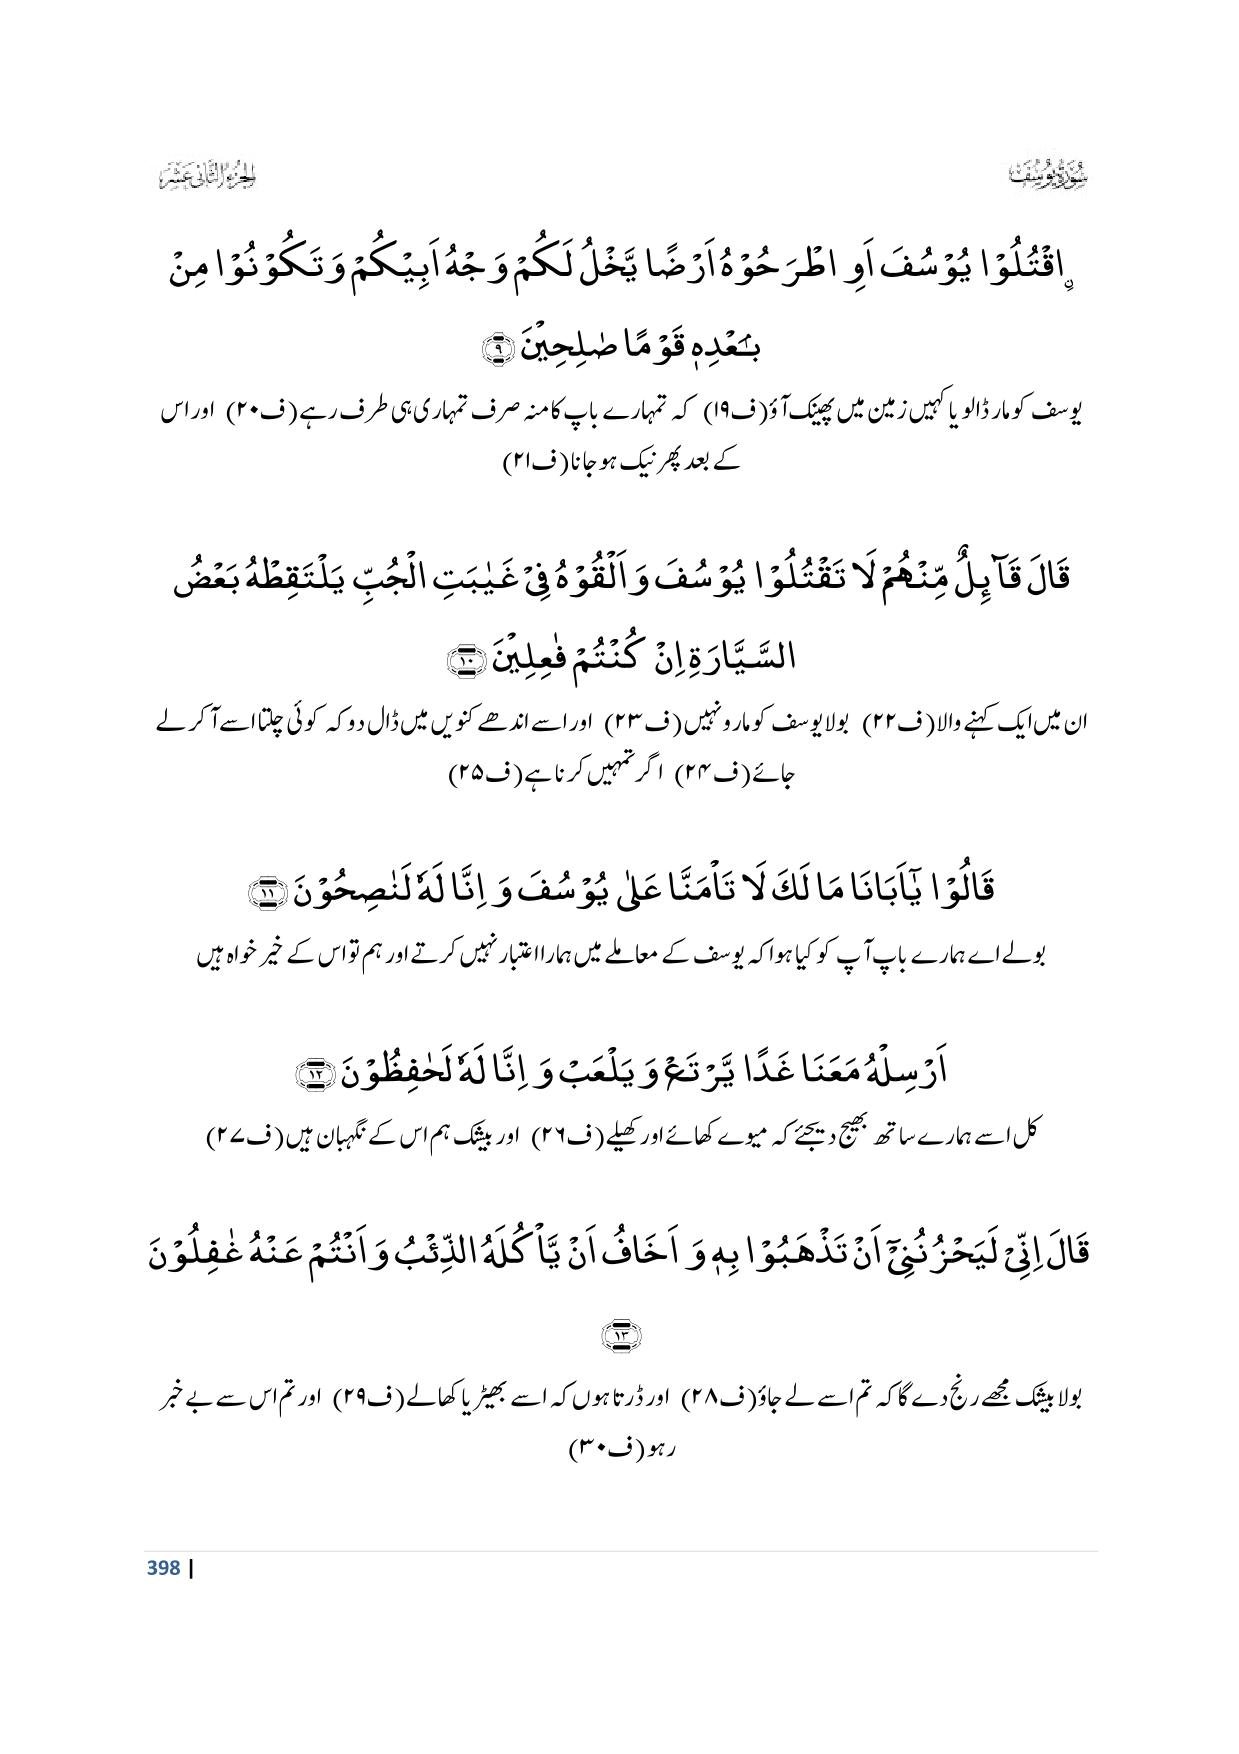 سُوۡرَۃُ یُوۡسُفَ
الجزء الثانی عشر
ۣاقۡتُلُوۡا یُوۡسُفَ اَوِ اطۡرَحُوۡہُ اَرۡضًا یَّخۡلُ لَکُمۡ وَجۡہُ اَبِیۡکُمۡ وَ تَکُوۡنُوۡا مِنۡ
بَعۡدِہٖ قَوۡمًا صٰلِحِیۡنَ ﴿۹﴾
یوسف کو مار ڈالو یا کہیں زمین میں پھینک آؤ (ف۱۹) کہ تمہارے باپ کا منہ صرف تمہاری ہی طرف رہے (ف۲۰) اور اس
کے بعد پھر نیک ہو جانا (ف۲۱)
قَالَ قَآئِلٌ مِّنۡہُمۡ لَا تَقۡتُلُوۡا یُوۡسُفَ وَ اَلۡقُوۡہُ فِیۡ غَیٰبَتِ الۡجُبِّ یَلۡتَقِطۡہُ بَعۡضُ
السَّیَّارَۃِ اِنۡ کُنۡتُمۡ فٰعِلِیۡنَ ﴿۱۰﴾
ان میں ایک کہنے والا (ف۲۲) بولا یوسف کو مارو نہیں (ف۲۳) اور اسے اندھے کنویں میں ڈال دو کہ کوئی چلتا اسے آکر لے
جائے (ف۲۴) اگر تمہیں کرنا ہے (ف۲۵)
قَالُوۡا یٰۤاَبَانَا مَا لَکَ لَا تَاۡمَنَّا عَلٰی یُوۡسُفَ وَ اِنَّا لَہٗ لَنٰصِحُوۡنَ ﴿۱۱﴾
بولے اے ہمارے باپ آپ کو کیا ہوا کہ یوسف کے معاملے میں ہمارا اعتبار نہیں کرتے اور ہم تو اس کے خیر خواہ ہیں
اَرۡسِلۡہُ مَعَنَا غَدًا یَّرۡتَعۡ وَ یَلۡعَبۡ وَ اِنَّا لَہٗ لَحٰفِظُوۡنَ ﴿۱۲﴾
کل اسے ہمارے ساتھ بھیج دیجئے کہ میوے کھائے اور کھیلے (ف۲۶) اور بیشک ہم اس کے نگہبان ہیں (ف۲۷)
قَالَ اِنِّیۡ لَیَحۡزُنُنِیۡۤ اَنۡ تَذۡہَبُوۡا بِہٖ وَ اَخَافُ اَنۡ یَّاۡکُلَہُ الذِّئۡبُ وَ اَنۡتُمۡ عَنۡہُ غٰفِلُوۡنَ
﴿۱۳﴾
بولا بیشک مجھے رنج دے گا کہ تم اسے لے جاؤ (ف۲۸) اور ڈرتا ہوں کہ اسے بھیڑیا کھالے (ف۲۹) اور تم اس سے بے خبر
رہو (ف۳۰)
398 |